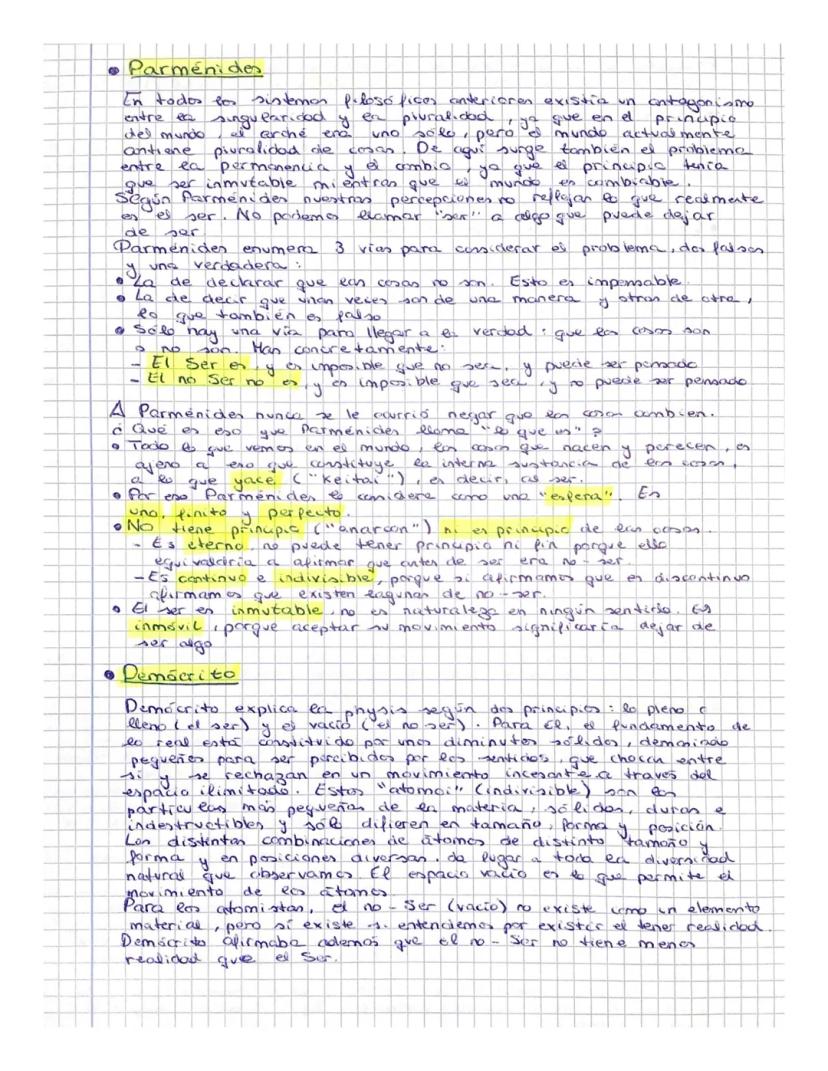 • Parménides
En todos los sistemas filosóficos anteriores existía un antagonismo
entre la singularidad y la pluralidad, ya que en el principio
del mundo, el arché era uno sólo, pero el mundo actualmente
contiene pluralidad de cosas. De aquí surge también el problema
entre la permanencia y el cambio, ya que el principio tenía
que ser inmutable mientras que el mundo es cambiable.
Según Parménides nuestras percepciones no reflejan lo que realmente
es el ser. No podemos llamar "ser" a algo que puede dejar
de ser.
Parménides enumera 3 vías para considerar el problema, dos falsas
y una verdadera:
• La de declarar que las cosas no son. Esto es impensable.
• La de decir que unas veces son de una manera y otras de otra,
lo que también es falso
• Sólo hay una vía para llegar a la verdad: que las cosas son
o no son. Mas concretamente:
- El Ser es, y es imposible que no sea, y puede ser pensado
- El no Ser no es, y es imposible que sea, y no puede ser pensado
A Parménides nunca se le ocurrió negar que las cosas cambien.
¿Qué es eso que Parménides llama "lo que es"?
• Todo lo que vemos en el mundo, las cosas que nacen y perecen, es
ajeno a eso que constituye la interna sustancia de las cosas,
a lo que yace ("Keitai"), es decir, al ser.
• Por eso Parménides lo considera como una "esfera". Es
uno, finito y perfecto.
• NO tiene principio ("anarcon") ni es principio de las cosas.
- Es eterno, no puede tener principio ni fin porque ello
equivaldría a afirmar que antes de ser era no-ser.
- Es continuo e indivisible, porque si afirmamos que es discontinuo
afirmamos que existen lagunas de no-ser.
• El ser es inmutable, no es naturaleza en ningún sentido. Es
inmóvil, porque aceptar su movimiento significaría dejar de
ser algo
• Demócrito
Demócrito explica la physis según dos principios: lo pleno o
lleno (el ser) y el vacío (el no ser). Para él, el fundamento de
lo real está constituido por unos diminutos sólidos, demasiado
pequeños para ser percibidos por los sentidos, que chocan entre
sí y se rechazan en un movimiento incesante a través del
espacio ilimitado. Estos "atomoi" (indivisible) son las
partículas más pequeñas de la materia, sólidas, duras e
indestructibles y sólo difieren en tamaño, forma y posición.
Las distintas combinaciones de átomos de distinto tamaño y
forma y en posiciones diversas, da lugar a toda la diversidad
natural que observamos. El espacio vacío es lo que permite el
movimiento de los átomos.
Para los atomistas, el no-Ser (vacío) no existe como un elemento
material, pero sí existe si entendemos por existir el tener realidad.
Demócrito afirmaba además que el no-Ser no tiene menos
realidad que el Ser.